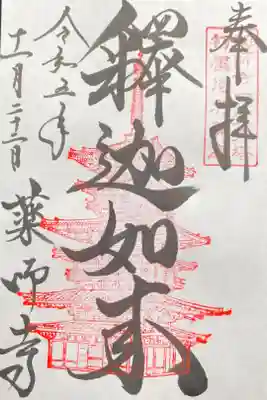 奉拝
釋迦如来
令和五年
十一月二十二日
薬師寺